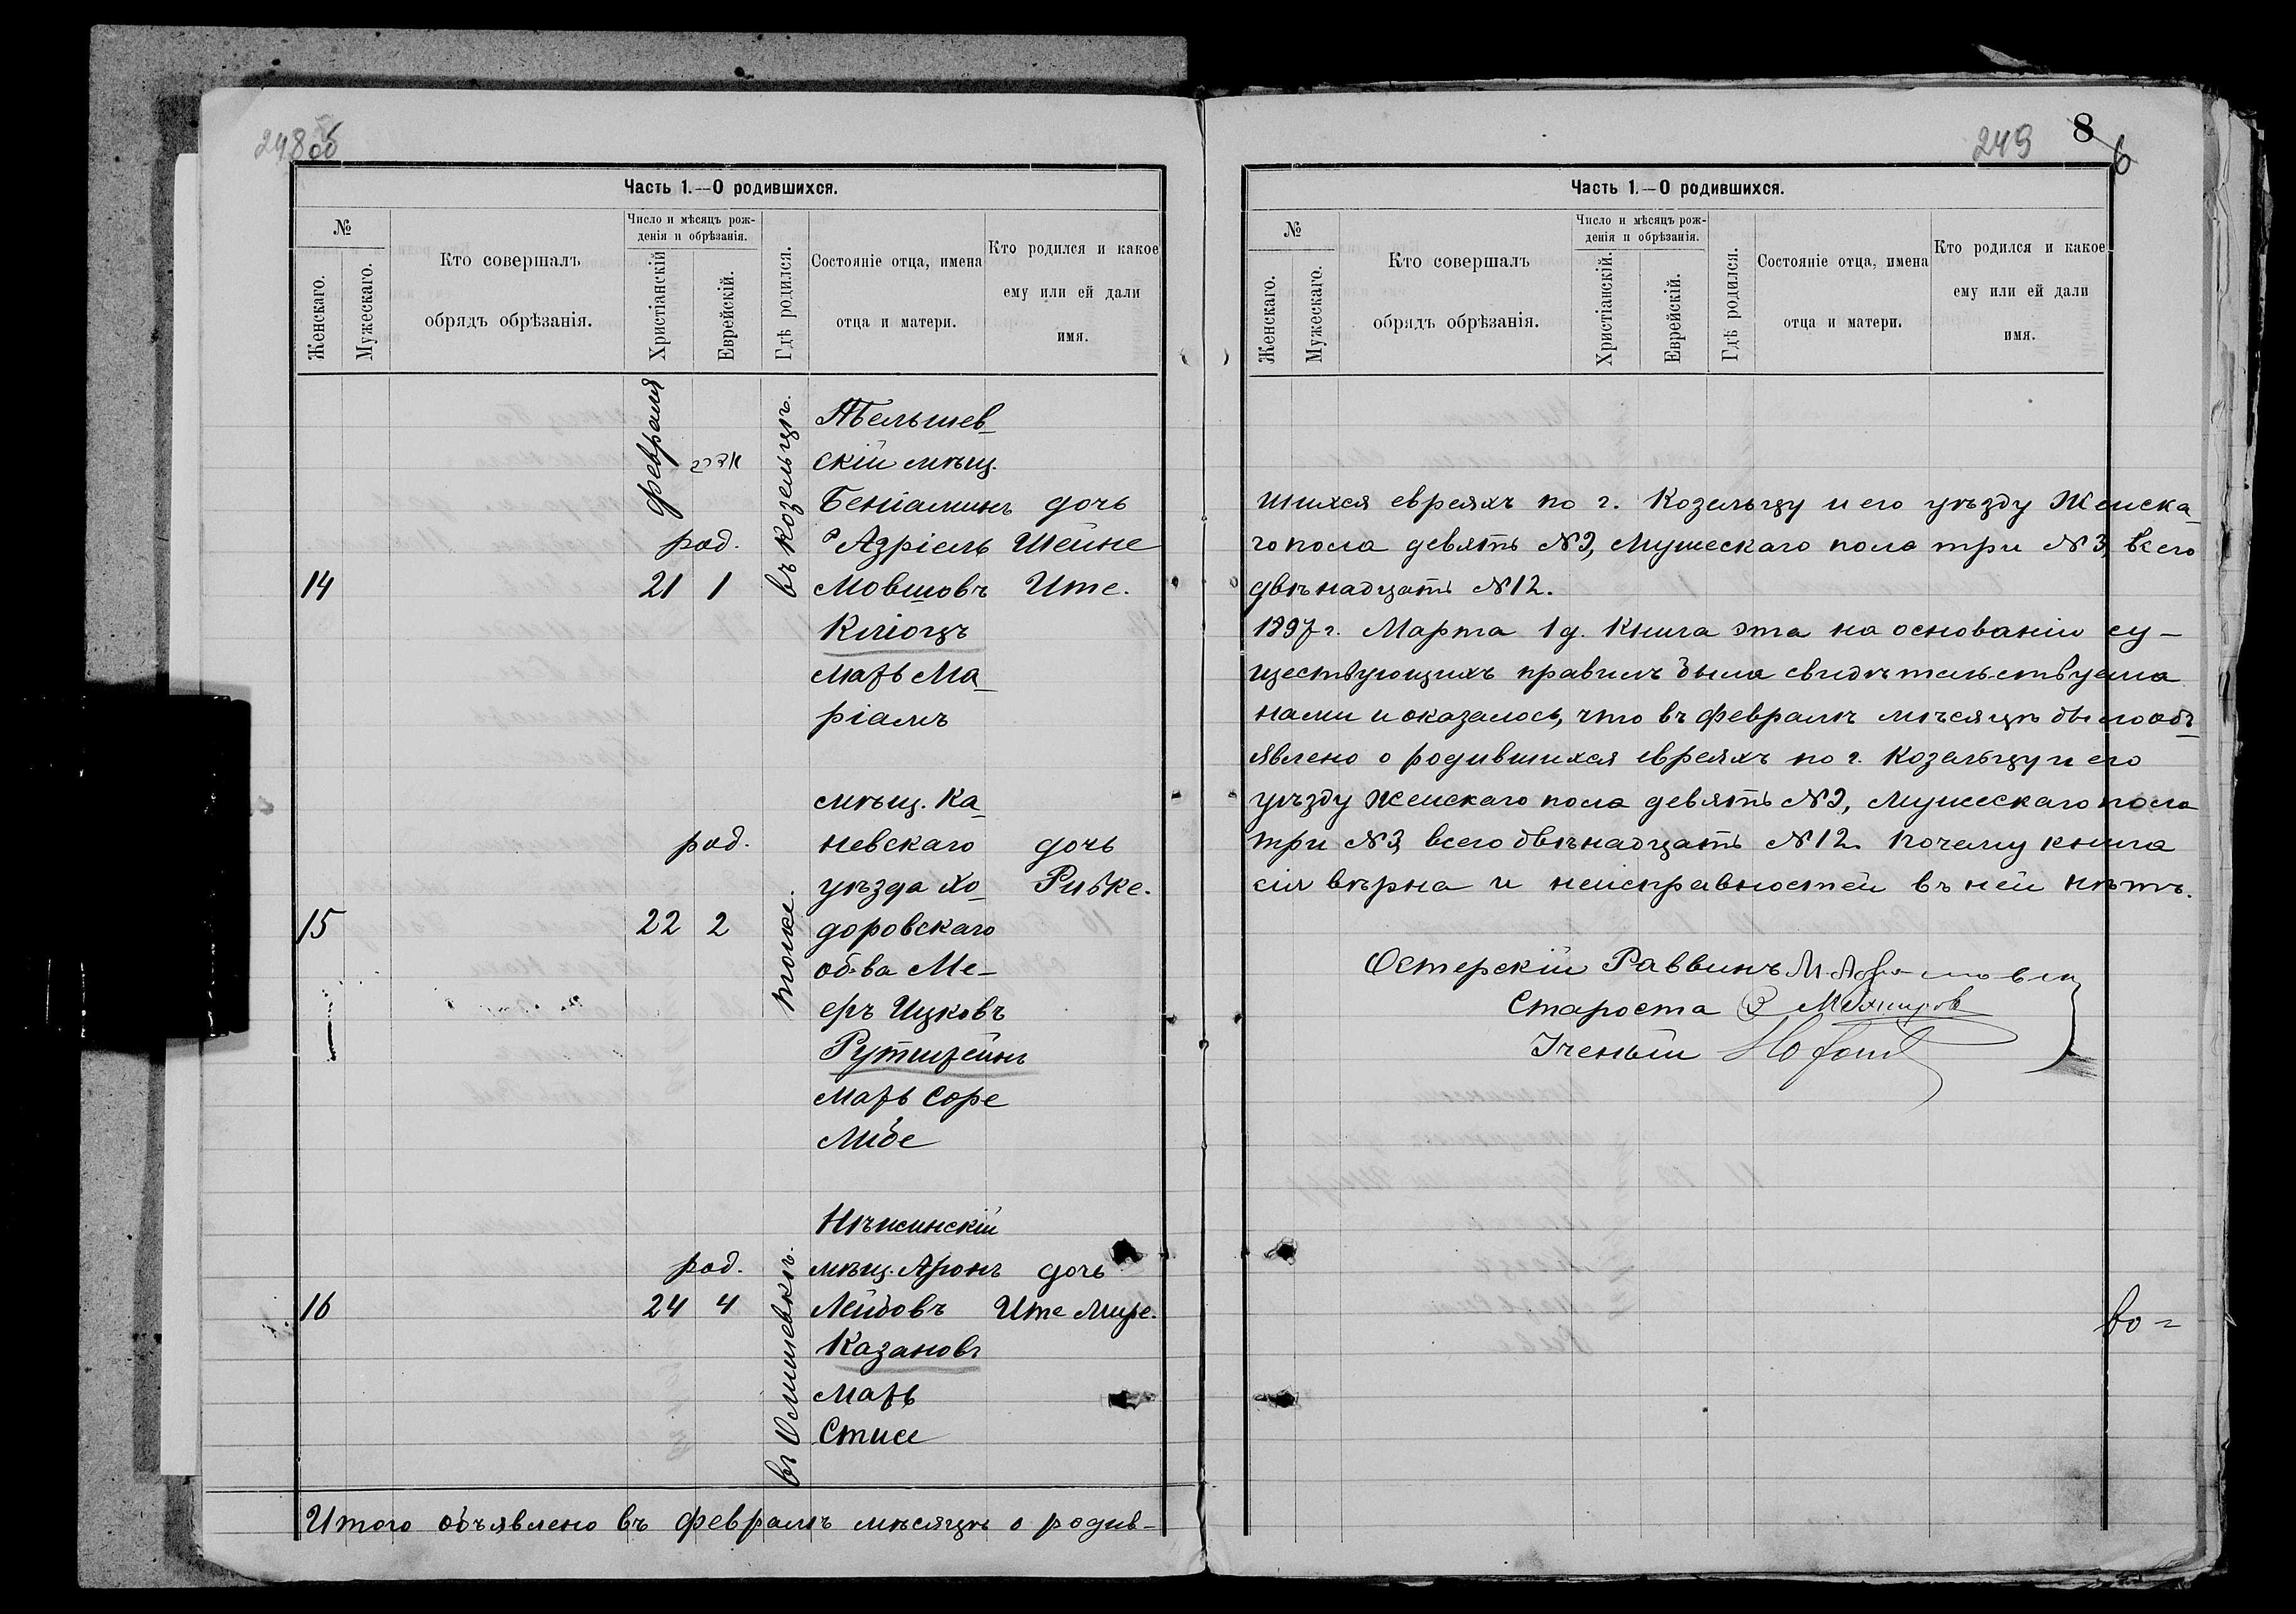 248 об
Часть 1.—О родившихся.
№
Женскаго.
Мужескаго.
Кто совершалъ
обрядъ обрѣзанія.
Число и мѣсяцъ рож-
денія и обрѣзанія.
Христіанскій
Еврейскій.
Гдѣ родился.
Состояніе отца, имена
отца и матери.
Кто родился и какое
ему или ей дали
имя.
февраля
въ Козельцѣ.
скій мѣщ.
Беніаминъ дочь
род. Азріель Шейне
14 21 1 Мовшовъ Ите.
Клюгцъ
мать Ма-
ріамъ
мѣщ. Ка-
род. невскаго дочь
уѣзда Хо- Ривке.
15 22 2 тоже. доровскаго
об-ва Ме-
еръ Ицковъ
Рутштейнъ
мать Соре
Либе
Нѣжинскій
род. мѣщ. Аронъ дочь
16 24 4 Лейбовъ Ите Мире.
Казановъ
мать
Стисе
Итого объявлено въ февралѣ мѣсяцѣ о родив-
249 8
6
Часть 1.—О родившихся.
№
Женскаго.
Мужескаго.
Кто совершалъ
обрядъ обрѣзанія.
Число и мѣсяцъ рож-
денія и обрѣзанія.
Христіанскій.
Еврейскій.
Гдѣ родился.
Состояніе отца, имена
отца и матери.
Кто родился и какое
ему или ей дали
имя.
шихся евреяхъ по г. Козельцу и его уѣзду Женска-
го пола девять №9, Мужескаго пола три №3, всего
двѣнадцать №12.
1897 г. Марта 1 д. Книга эта на основаніи су-
ществующихъ правилъ была свидѣтельствуема
нами и оказалось, что въ февралѣ мѣсяцѣ было объ-
явлено о родившихся евреяхъ по г. Козельцу и его
уѣзду Женскаго пола девять №9, Мужескаго пола
три №3 всего двѣнадцать №12. Почему книга
сія вѣрна и неисправностей въ ней нѣтъ.
Остерскій Раввинъ М.
Староста
Ученый
во =